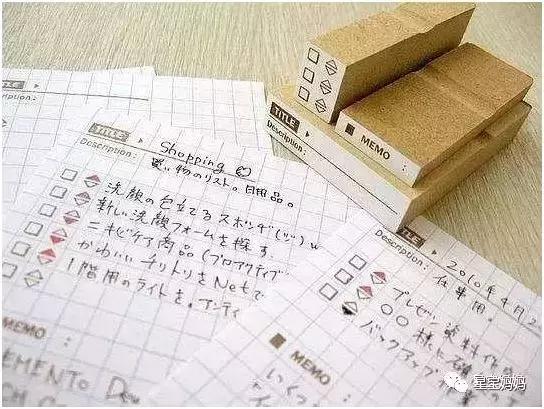 TITLE
Description:
TITLE
Description:
MEMO :
TITLE
Description:
Shopping
買い物のリスト。日用品。
洗顔の泡立てるスポンジ(ﾂ)w
新しい洗顔フォームを探す
ニキビケア商品(プロアクティブ
かわいいチリトリをNetで
1階用のライトを。アンティ
MEMO
TITLE
Description:
2010年4月2
仕事用。
プレゼン資料作
○○様に
バックアップ
MEMO
いくつ
星宝妈妈